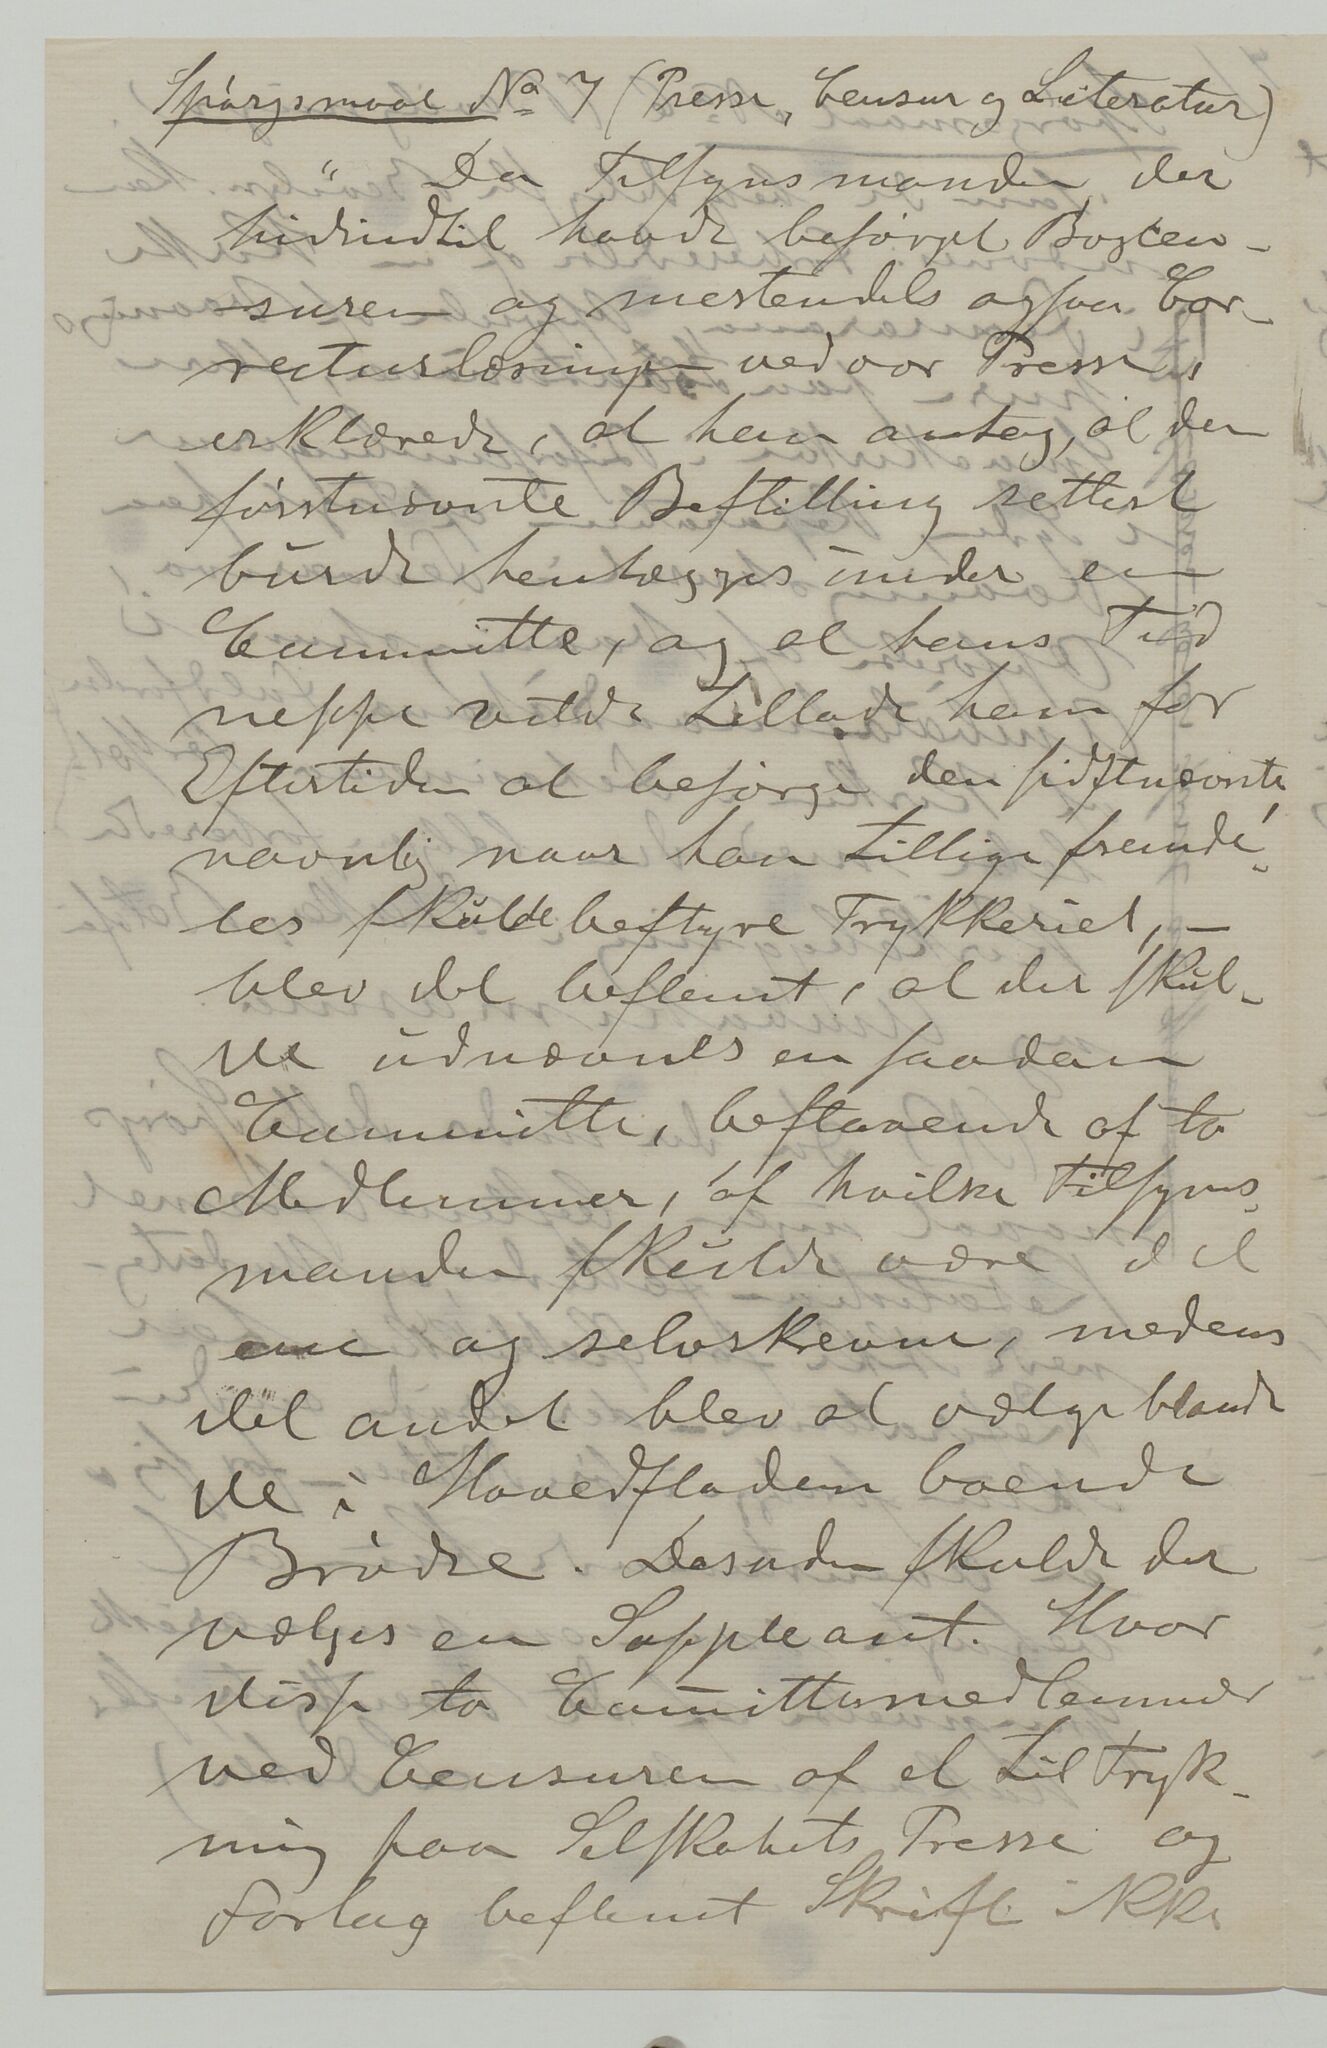 Spörgsmaal No 7 (Presse, Censur og Literatur)
" Da Tilsynsmanden, der
hidindtil havde besörget Bogcen-
suren og mestendels ogsaa Cor-
recturlæsningen ved vor Presse,
erklærede, at han antog, at den
förstnævnte Bestilling rettest
burde henlægges under en
Committe, og at hans Tid
neppe vilde tillade ham for
Eftertiden at besörge den sidstnævnte,
navnlig naar han tillige fremde-
les skulde bestyre Trykkeriet, –
blev det bestemt, at der skul-
de udnævnes en saadan
Committe, bestaaende af to
Medlemmer, af hvilke Tilsyns-
manden skulde være det
ene og selvskrevne, medens
det andet blev at vælge blandt
de i Hovedstaden boende
Brödre. Desuden skulde der
vælges en Suppleant. Hvor
disse to Committeemedlemmer
ved Censuren af et til Tryk-
ning paa Selskabets Presse og
Forlag bestemt Skrift ikke